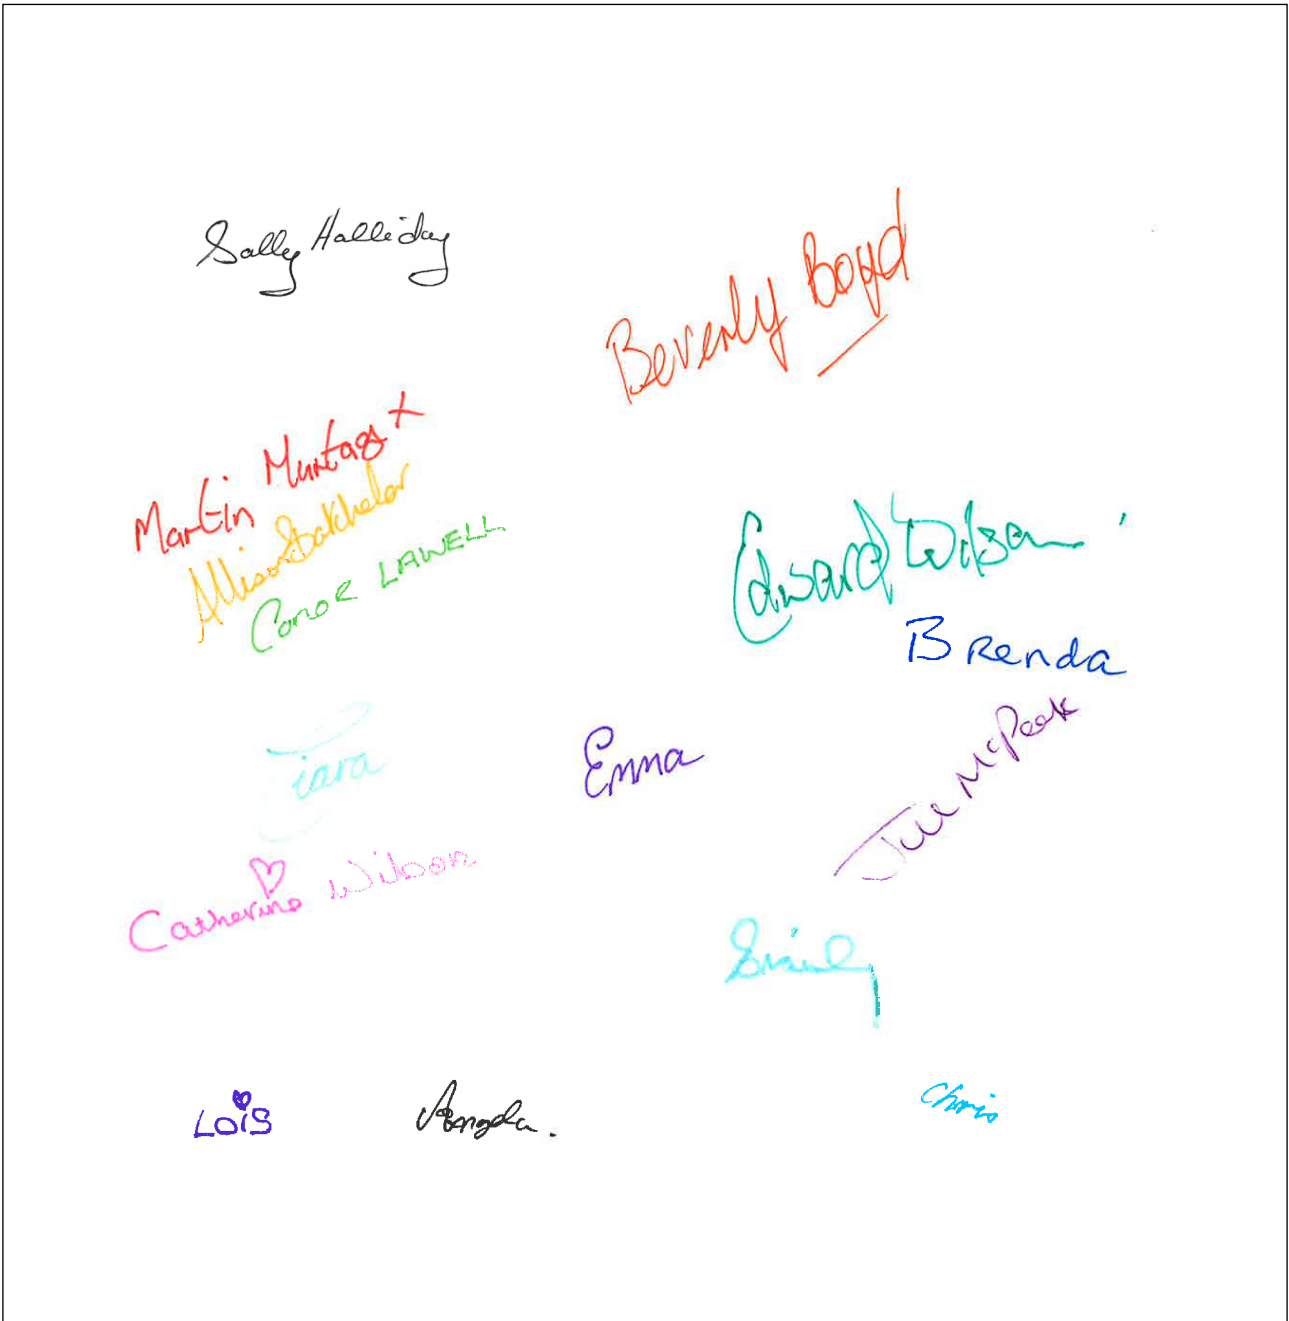 Sally Halliday
Beverly Boyd
Martin Murtagh x
Allison Batchelor
Conor LAWELL
Edward Wilson
BRenda
Ciara
Emma
Jill McPeak
Catherine Wilson
LOIS
Angela.
Chris